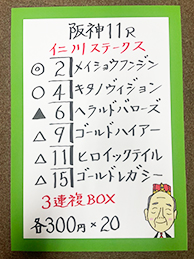 阪神11R
仁川ステークス
◎ 2 メイショウフンジン
○ 4 キタノヴィジョン
▲ 6 ヘラルドバローズ
△ 9 ゴールドハイアー
△ 11 ヒロイックテイル
△ 15 ゴールドレガシー
3連複BOX
各300円×20